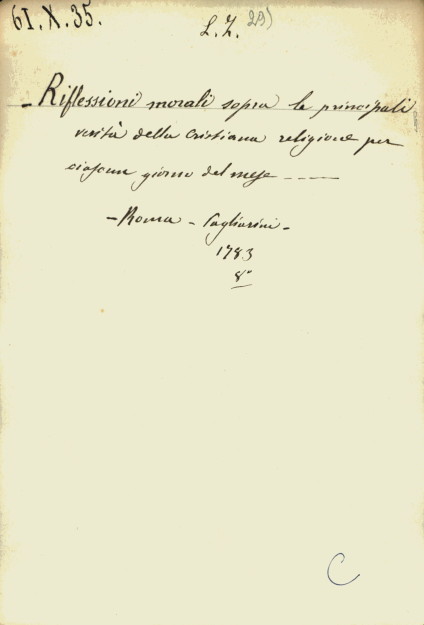 61.X.35.
L.Z. 29)
- Riflessioni morali sopra le principali
verità della cristiana religione per
ciascun giorno del mese ----
- Roma - Pagliarini -
1783
8°
C